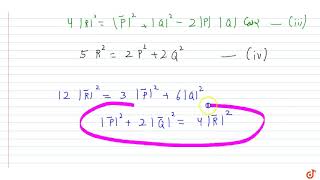 4 |R̄|² = |P̄|² + |Q|² - 2|P| |Q| cos α — (iii)
5 R² = 2 P² + 2 Q² — (iv)
12 |R̄|² = 3 |P̄|² + 6|Q|²
|P̄|² + 2 |Q̄|² = 4 |R̄|²